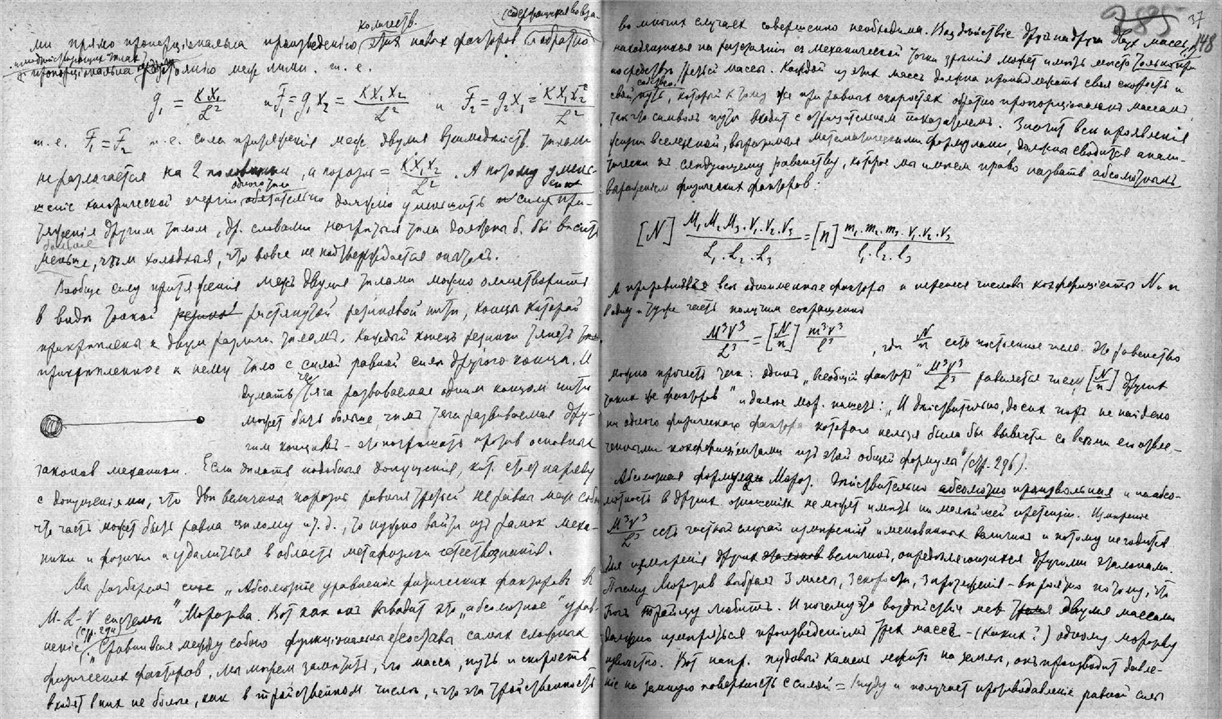 количеств.
ми прямо пропорциональна произведению этих новых факторов и обратно
пропорциональна расстоянию между ними. т. е.
g₁ = KX₁/L² и F₁ = g₁X₂ = KX₁X₂/L² и F₂ = g₂X₁ = KX₁X₂/L²
т. е. F₁ = F₂ т. е. сила притяжения между двумя взаимодейств. телами
не разлагается на 2 половины, а порознь = KX₁X₂/L². А потому уменьшение
калорической энергии обязательно должно уменьшать и силу притяжения
другим телом, др. словами нагретые тела должны б. бы весить
больше
меньше, чем холодные, что вовсе не подтверждается опытом.
Вообще силу притяжения между двумя телами можно олицетворить
в виде тонкой растянутой резиновой нити, концы которой
прикреплены к двум разным телам. Каждый конец резинки тянет
прикрепленное к нему тело с силой равной силе другого конца. И
думать, что тяга развиваемая одним концом нити
может быть больше чем тяга развиваемая другим
концом – это погрешать против основных
законов механики. Если делать подобные допущения, кот. стоят наравне
с допущениями, что две величины порознь равные третьей не равны между собой
что часть может быть равна целому и т. д., то нужно выйти из рамок механики
и физики и удалиться в область метафизики естествознания.
Мы разберем еще „Абсолютное уравнение физических факторов в
M-L-V системе" Морозова. Вот как он выводит это „абсолютное" уравнение
„Сравнивая между собою функциональные составы самых сложных
физических факторов, мы можем заметить, что масса, путь и скорость
входят в них не более, как в тройственном числе, что эта тройственность
37
148
во многих случаях совершенно необходима. Воздействие друг на друга двух масс,
находящихся на расстоянии с механической точки зрения может иметь место только при
посредстве третьей массы. Каждой из этих масс должна принадлежать своя скорость и
свой путь, который к тому же при равных скоростях обратно пропорционален массам,
так что символ пути входит с отрицательным показателем. Значит все проявления
жизни вселенной, выражаемые математическими формулами, должны сводиться
к следующему равенству, которое мы имеем право назвать абсолютным
уравнением физических факторов:
[N] M₁.M₂.M₃.V₁.V₂.V₃ / L₁.L₂.L₃ = [n] m₁.m₂.m₃.v₁.v₂.v₃ / l₁.l₂.l₃
А приравнивая все одноименные факторы и перенеся числовые коэффициенты N и n
в одну и ту же часть получим сокращенно
M³V³/L³ = [N/n] m³v³/l³, где N/n есть постоянное число. Это равенство
можно прочесть так: один „всеобщий фактор" M³V³/L³ равняется числу [N/n] других
таких же факторов" и далее Мор. пишет: „И действительно, до сих пор не найдено
ни одного физического фактора которого нельзя было бы вывести со всеми его
численными коэффициентами из этой общей формулы" (стр. 296).
Абсолютная формула Мороз. действительно абсолютно произвольная и на
в других отношениях не может иметь ни малейшей претензии. Измерение
M³V³/L³ есть частный случай измерений именованных величин и потому не годится
для измерения других величин, определяющихся другими эталонами.
Почему Морозов выбрал 3 массы, 3 скорости, 3 протяжения – вероятно потому, что
бог троицу любит. И почему то воздействие между двумя массами
должно измеряться произведением трех масс – (каких?) одному Морозову
известно. Вот напр. пудовый камень лежит на земле, он производит давление
на земную поверхность с силой = 1 пуду и получает противодавление равной силы